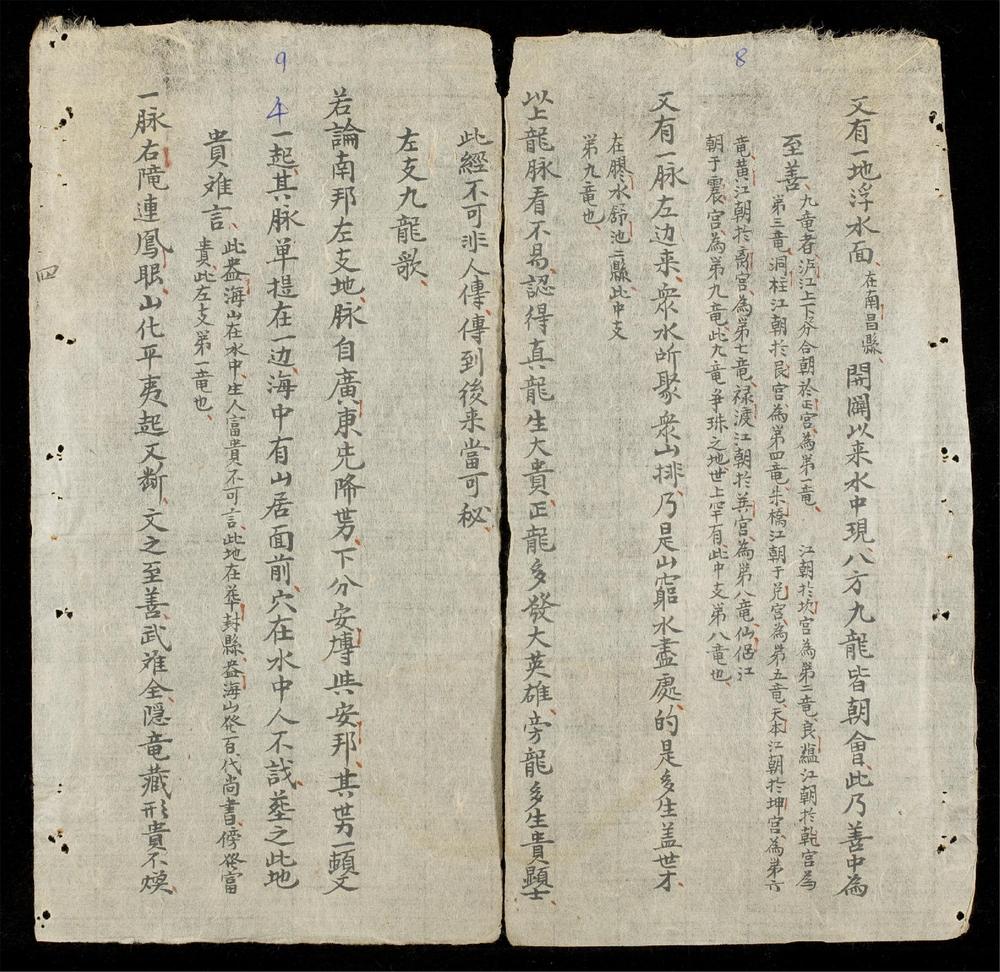 8
又有一地浮水面、在南昌縣、開闢以来水中現八方九龍皆朝會、此乃善中為
至善、九竜者泸江上下分合朝於正宫、為第一竜、江朝於坎宫為第二竜、良 江朝於乾宫為
第三竜、洞柱江朝於艮宫、為第四竜、朱橋江朝于兑宫、為第五竜、天本江朝於坤宫、為第六
竜、黄江朝於离宫為第七竜、禄渡江朝於巽宫、為第八竜、仙侣江
朝于震宫、為第九竜、此九竜争珠之地世上罕有、此中支第八竜也、
又有一脉左边来、衆水所聚衆山排、乃是山窮水盡處、的是多生盖世才、
在膠水舒池二縣、此中支
第九竜也、
以上龍脉看不易、認得真龍生大貴、正龍多發大英雄、旁龍多生貴顕士、
此經不可非人傳、傳到後来當可秘、
9
左支九龍歌、
若論南邦左支地、脉自廣東先降势、下分安博与安邦、其势一頓又
4
一起、其脉单提在一边、海中有山居面前、穴在水中人不識、葬之此地
貴难言、此盎海山在水中、生人富貴不可言、此地在華封縣、盎海山発百代尚書、傍発富
貴、此左支第一竜也、
一脉右降連鳳眼、山化平夷起又断、文之至善武难全、隠竜藏形貴不煥、
四